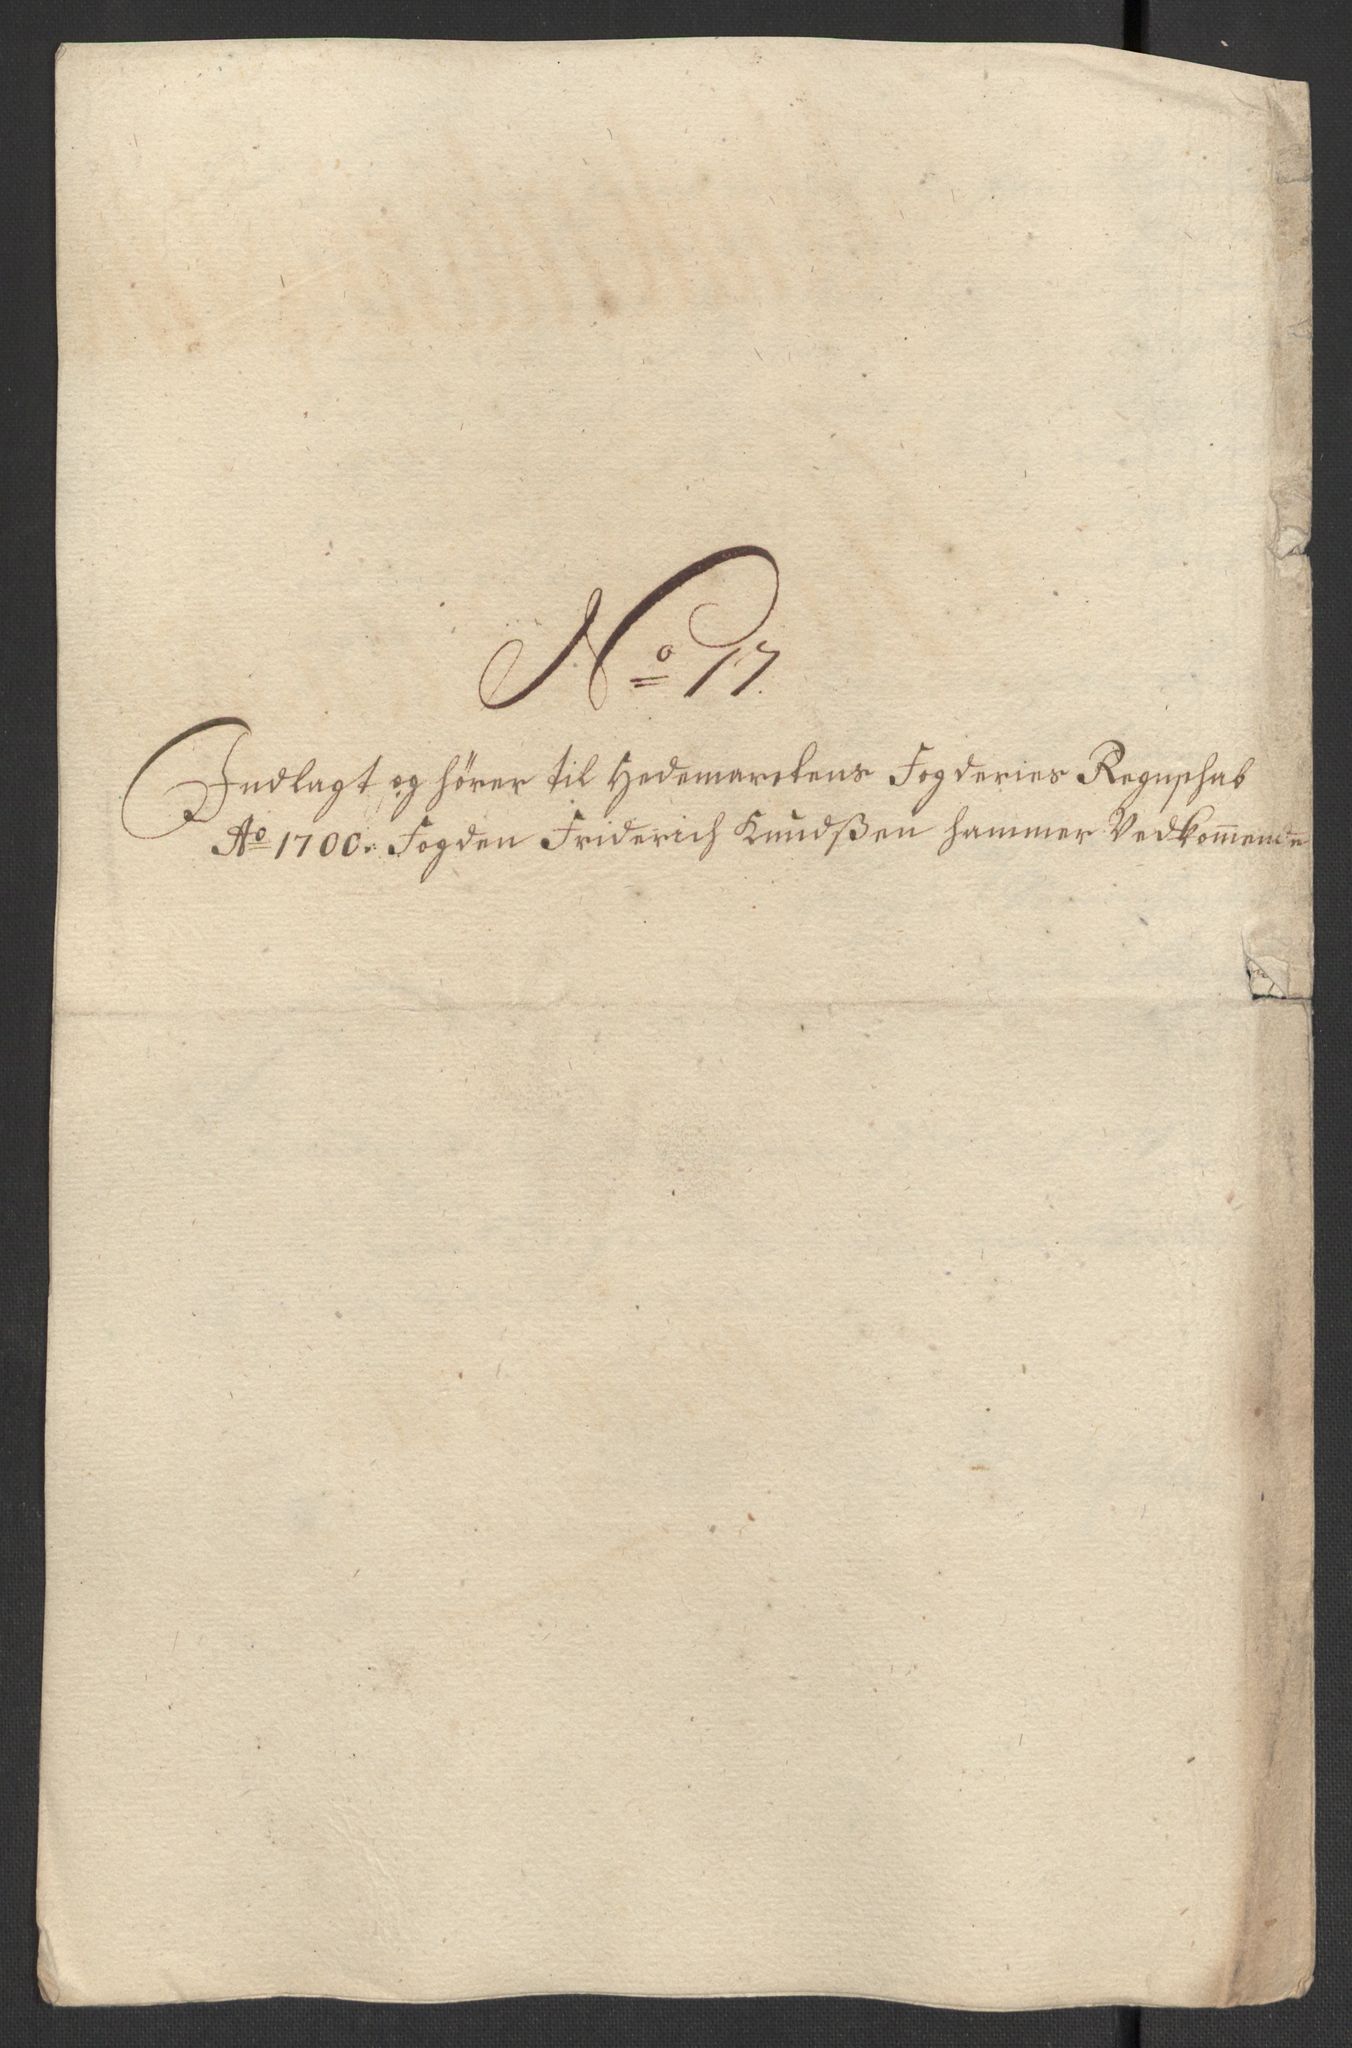 No 17.
Indlagt og hörer til Hedemarckens Fogderies Regnschab
Ao 1700. Fogden Friderich Knudßen hammer Vedkom̄ende